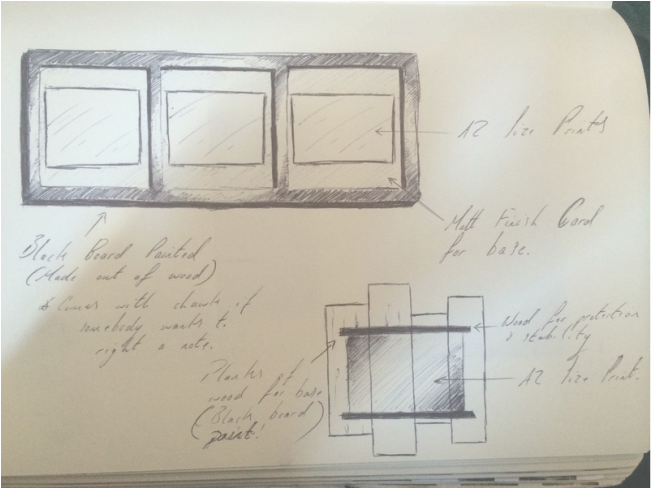 A2 Size Prints
Matt Finish Card
for base.
Black Board Painted
(Made out of wood)
Comes with chawk if
somebody wants to
right a note.
Wood for protection
& stability
A2 Size Print.
Planks of
wood for base
(Black board
paint!